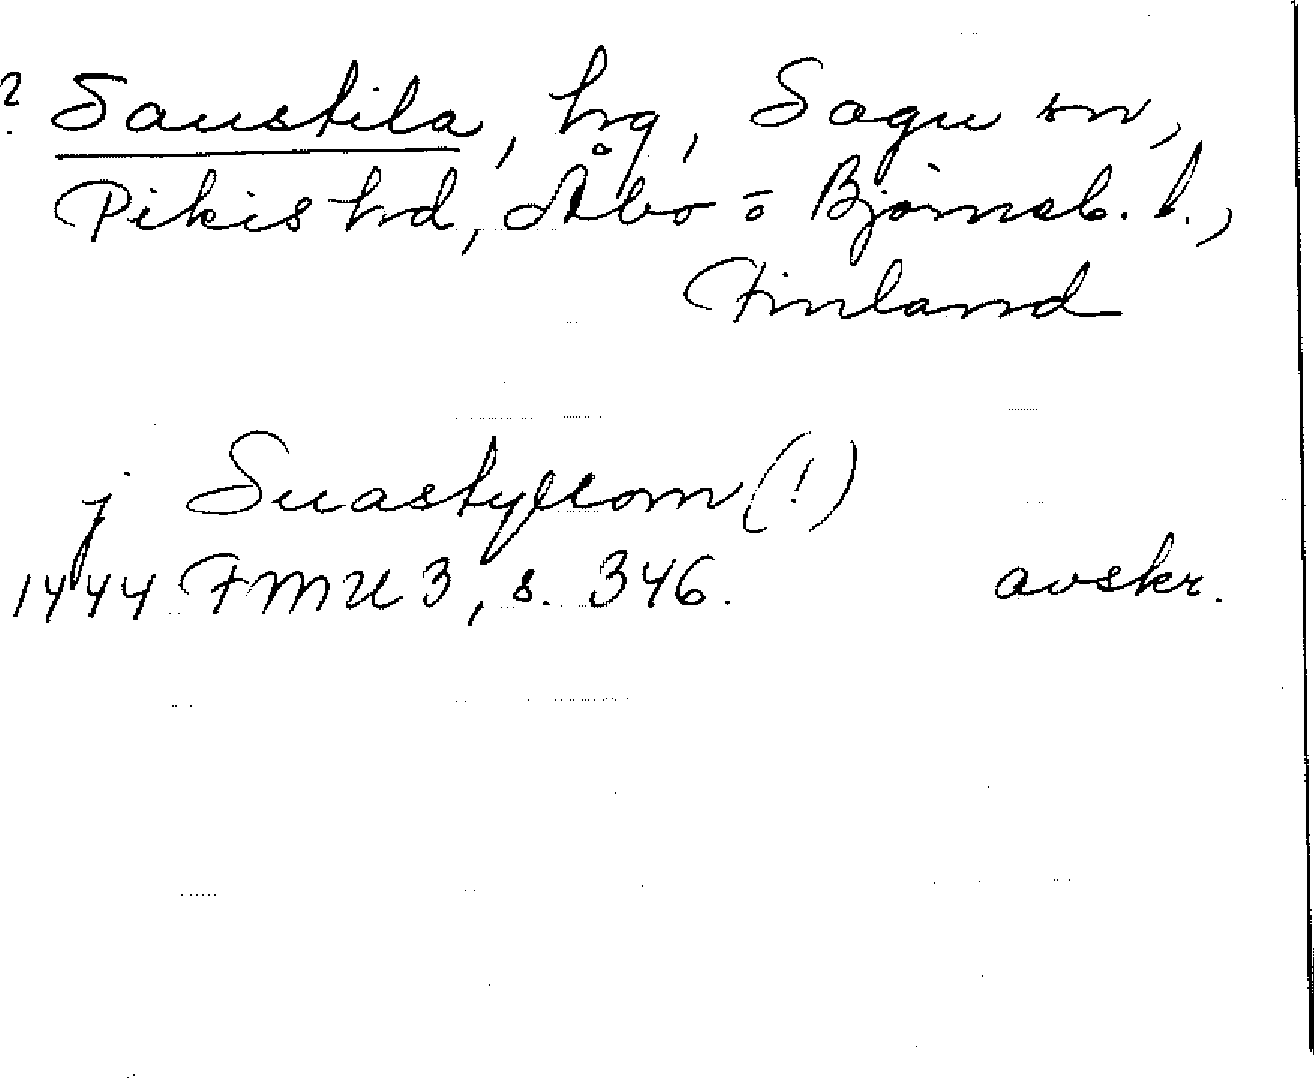 ? Saustila, hrg, Sagu sn,
Pikis hrd, Åbo o Björneb. l.,
Finland
j Suastyllom (!)
1444 FMU 3, s. 346. avskr.